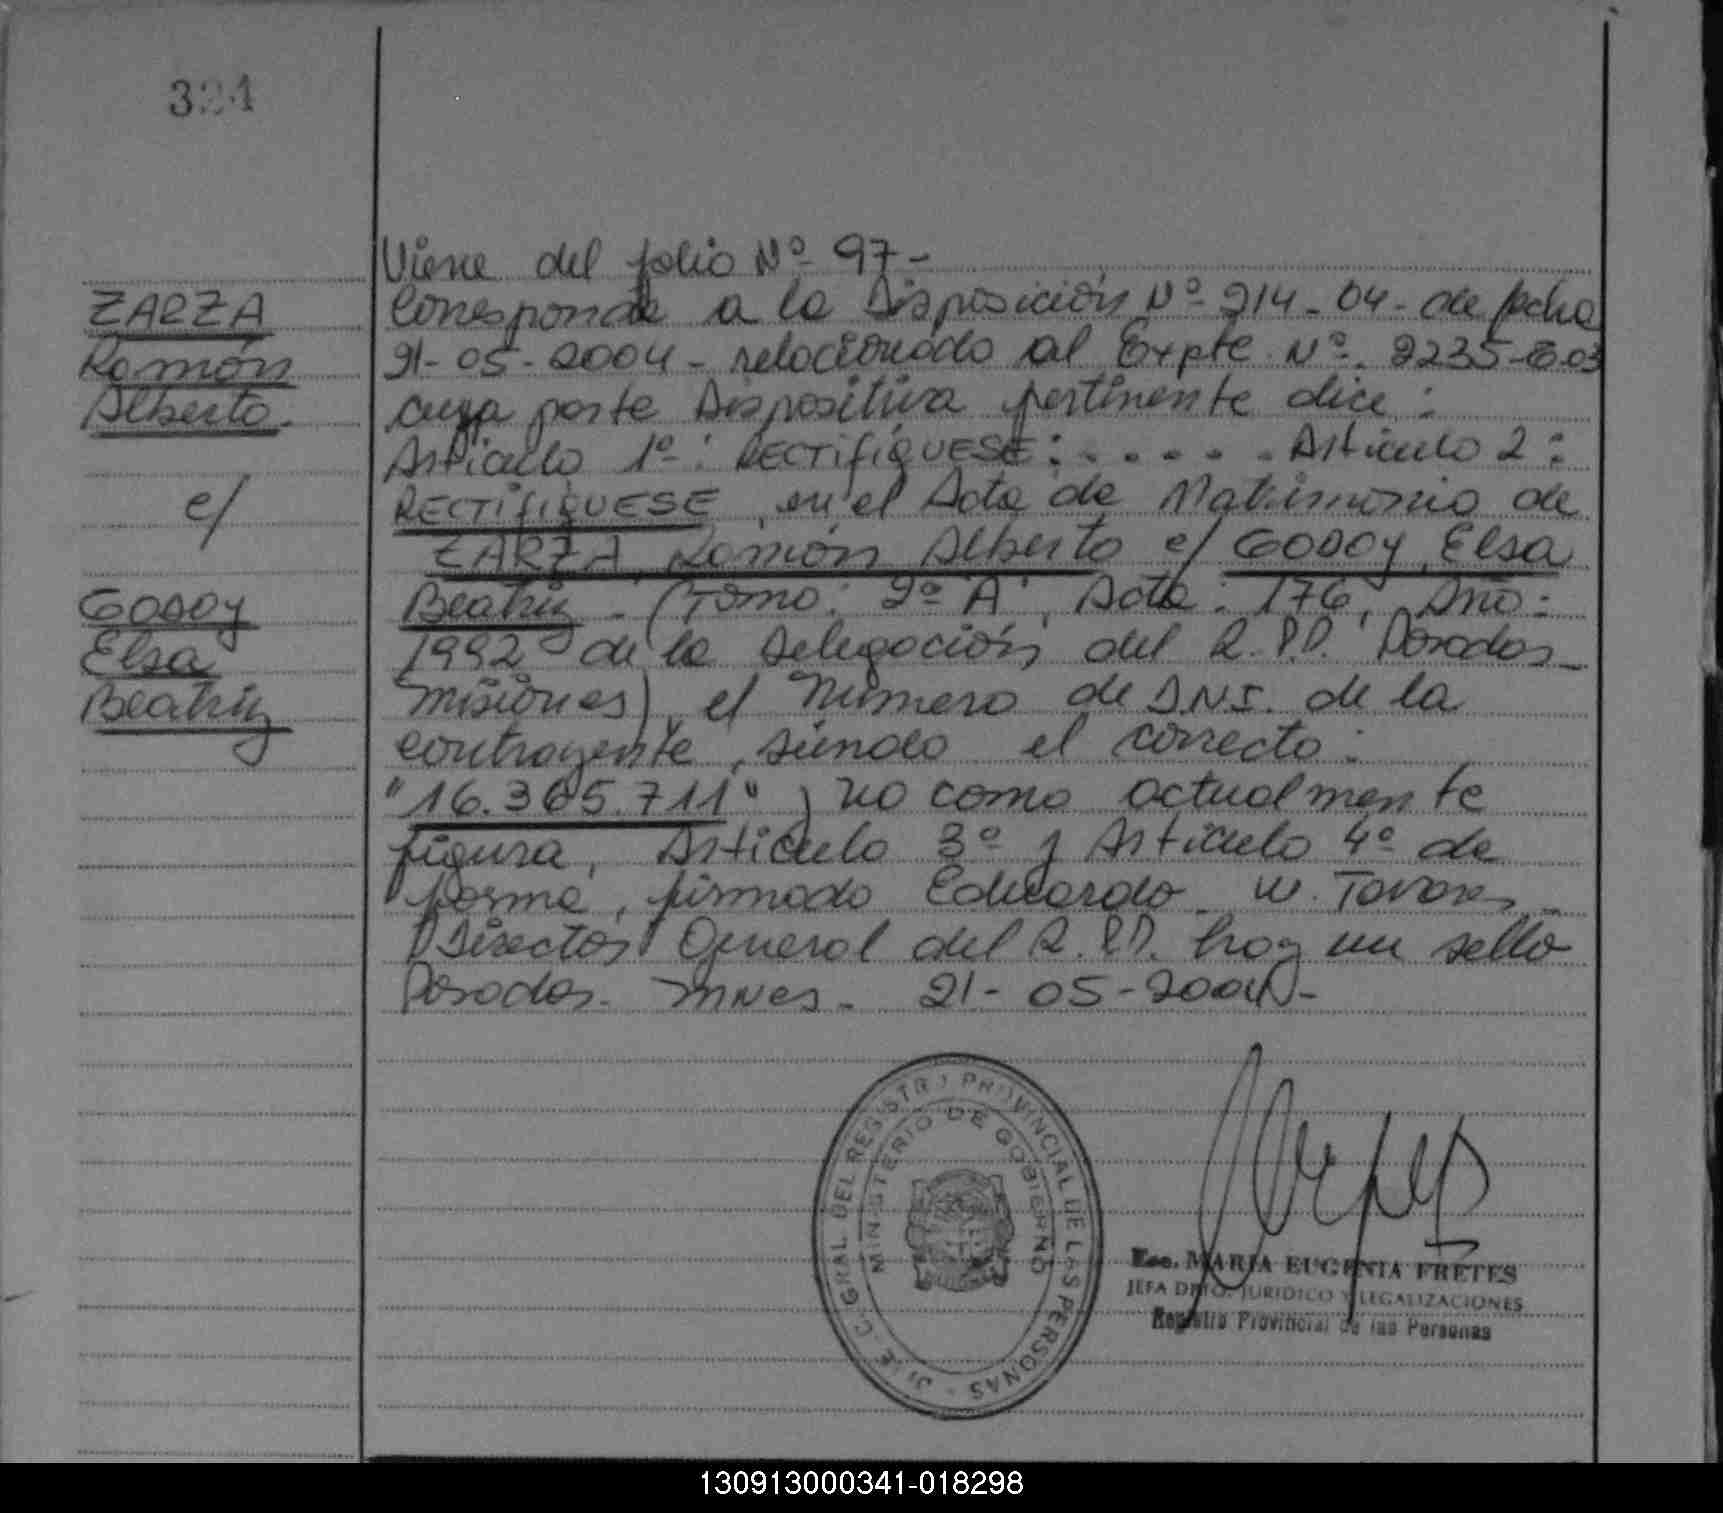 324
Viene del folio Nº 97-
Corresponde a la Disposición Nº 214-04- de fecha
21-05-2004- relacionado al Expte. Nº 2235-G-03
cuya parte Dispositiva pertinente dice:
Artículo 1º: RECTIFÍQUESE: . . . . . Artículo 2:
RECTIFIQUESE, en el Acta de Matrimonio de
ZARZA, Ramón Alberto c/ GODOY, Elsa
Beatriz. (Tomo: 2º "A", Acta: 176, Año:
1992 de la Delegación del R.P.P. Posadas
Misiones), el Número de D.N.I. de la
contrayente, siendo el correcto:
"16.365.711" y no como actualmente
figura, Artículo 3º y Artículo 4º de
forma, firmado Eduardo W. Tavares
Director General del R.P.P. hay un sello
Posadas. Mnes. 21-05-2004-
ZARZA
Ramón
Alberto.
c/
GODOY
Elsa
Beatriz
GRAL. DEL REGISTRO PROVINCIAL DE LAS PERSONAS
MINISTERIO DE GOBIERNO
Esc. MARIA EUGENIA FRETES
JEFA DPTO. JURIDICO Y LEGALIZACIONES
Registro Provincial de las Personas
130913000341-018298